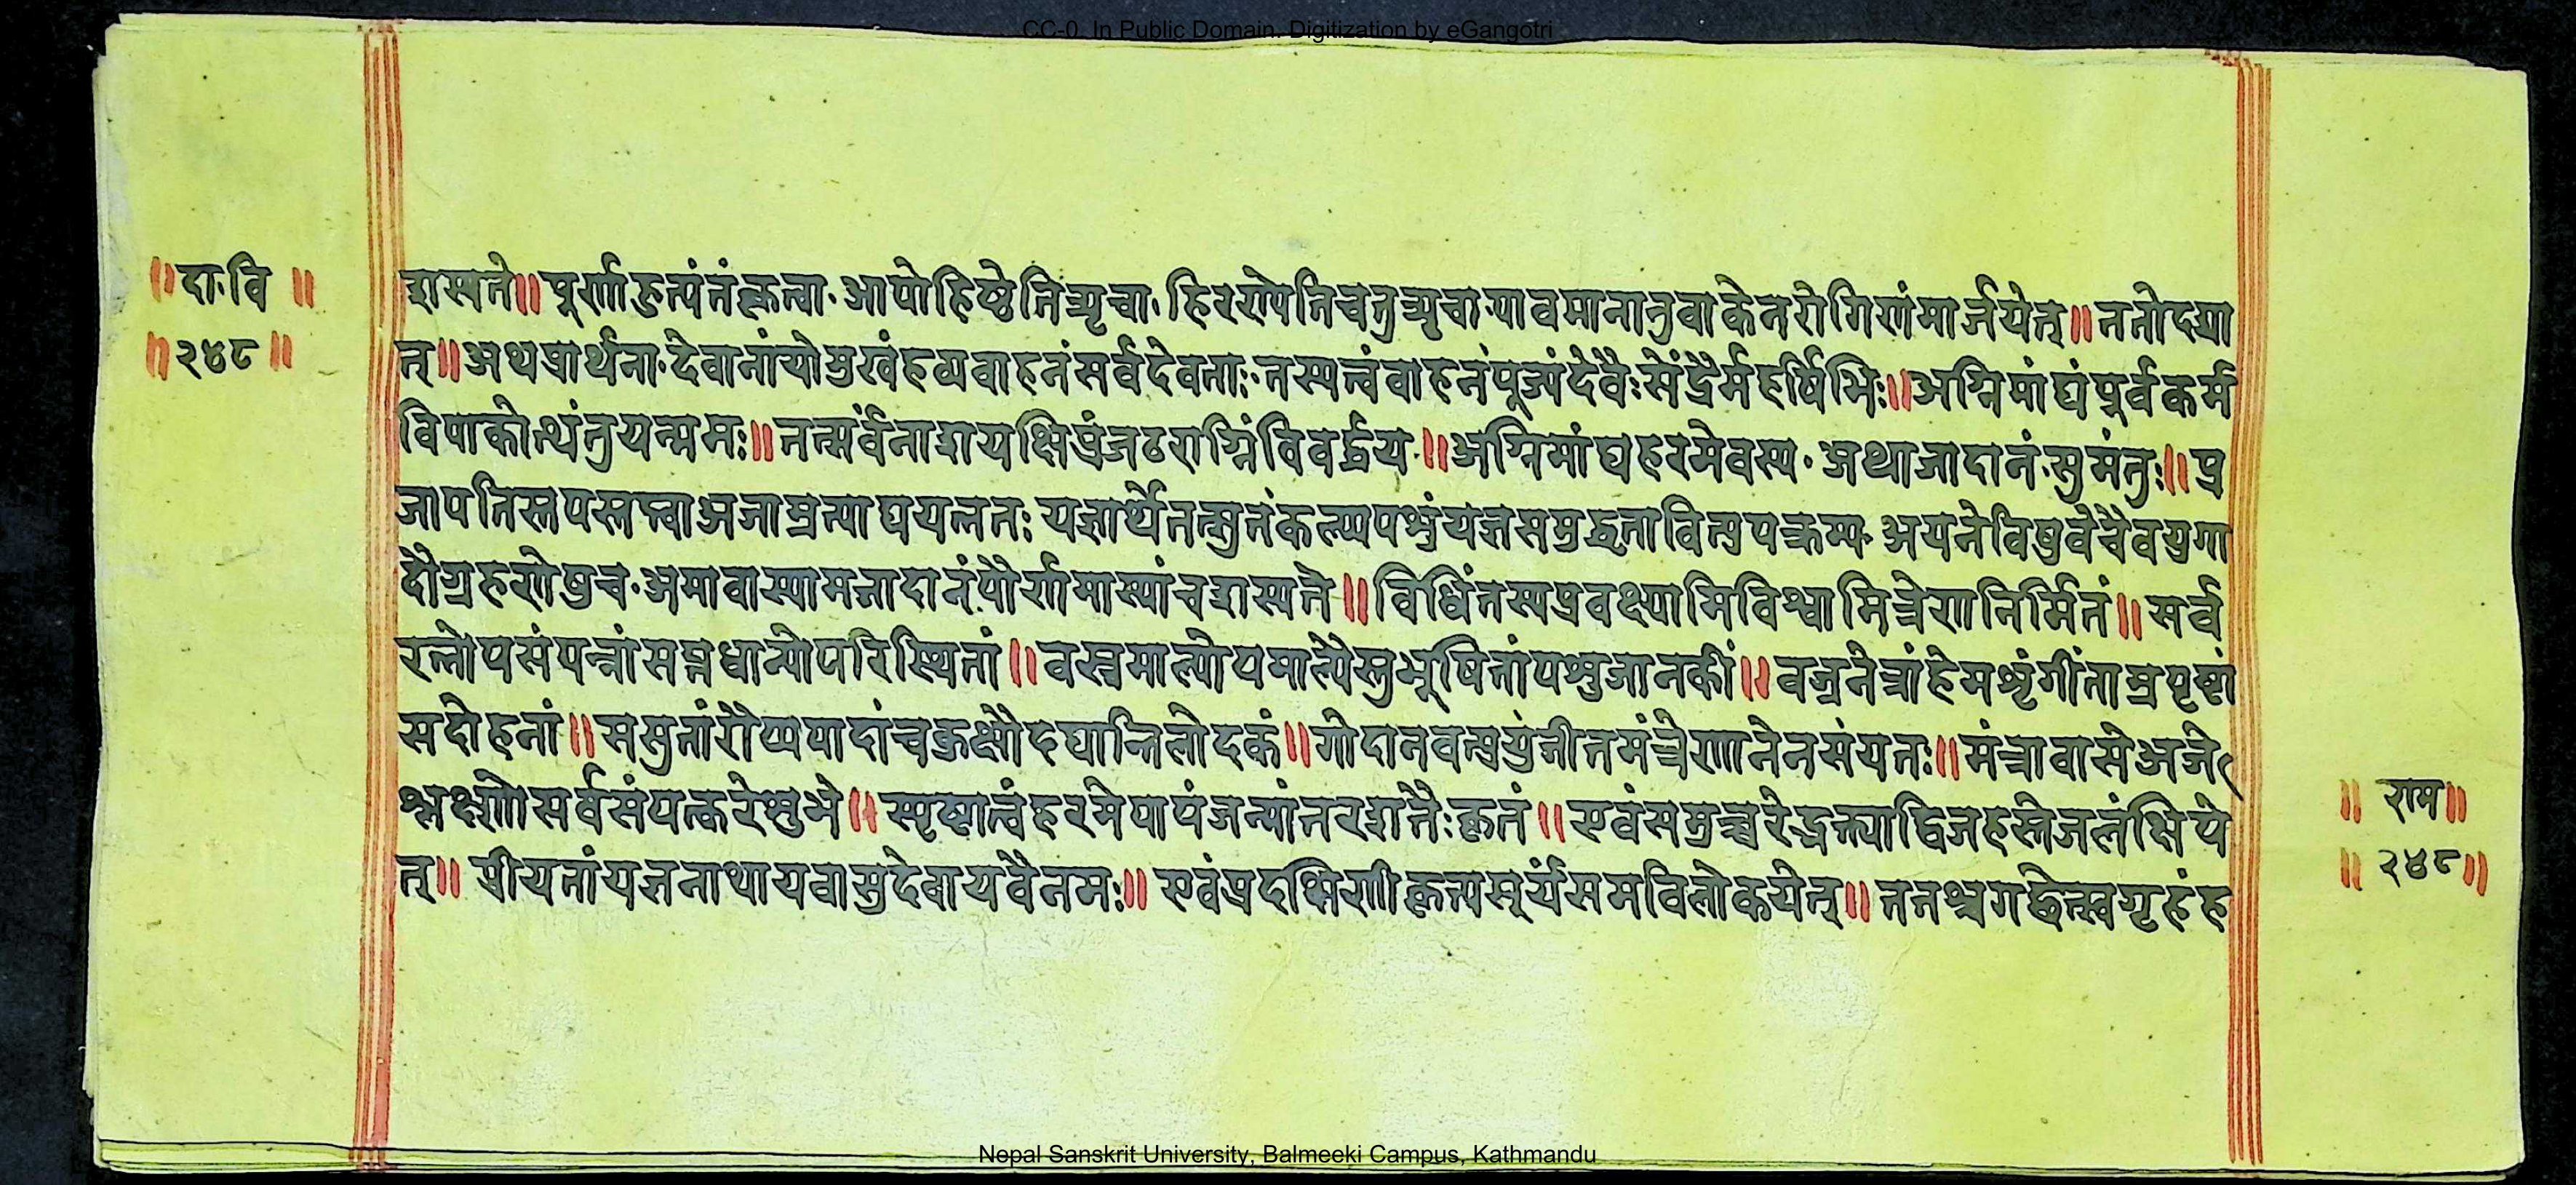 CC-0. In Public Domain. Digitization by eGangotri
॥दा॰वि॥
॥२४८॥
शस्यते॥पूर्णाहुत्यंतंकृत्वा॰आपोहिष्ठेतितृचा॰हिरण्येतिचतुर्ऋचा॰पावमानानुवाकेनरोगिणंमार्जयेत्॥ततोदद्या
त्॥अथप्रार्थना॰देवानांयोमुखंहव्यवाहनंसर्वदेवताः॰तस्यत्वंवाहनंपूज्यंदेवैःसेंद्रैर्महर्षिभिः॥अग्निमांद्यंपूर्वकर्म
विपाकोत्थंतुयन्ममः॥तत्सर्वंनाशयक्षिप्रंजठराग्निंविवर्द्धय॰॥अग्निमांद्यहरमेवस्य॰अथाजादानं॰सुमंतुः॥प्र
जापतिस्तपस्तप्त्वाअजामुत्पाद्ययत्नतः यज्ञार्थेतत्सुतंकल्प्यपशुंयज्ञसमुद्धता॰अयनेविषुवेचैवयुगा
दौग्रहणेषुच॰अमावास्यामजादानंपौर्णमास्यांचशस्यते॥विधिंतस्यप्रवक्ष्यामिविश्वामित्रेणनिर्मितं॥सर्व
रत्नोपसंपन्नांसप्तधान्योपरिस्थितां॥वस्त्रमाल्योपमाल्यैस्तुभूषितांपशुजानकीं॥वज्रनेत्रांहेमशृंगींताम्रपृष्ठां
सदोहनां॥ससुतांरौप्यपादांचकुक्षौदद्यात्तिलोदकं॥गोदानवत्प्रयुंजीतमंत्रेणानेनसंयतः॥मंत्रावासेअजे
श्लक्ष्णेसर्वसंपत्करेशुभे॥स्पृष्टात्वंहरमेपापंजन्मांतरशतैःकृतं॥एवंसमुच्चरेद्भक्त्याद्विजहस्तेजलंक्षिपे
त्॥ प्रीयतांयज्ञनाथायवासुदेवायवैनमः॥ एवंप्रदक्षिणीकृत्यसूर्यंसमविलोकयेत्॥ततश्चगच्छेत्स्वगृहंह
॥ राम॥
॥ २४८॥
Nepal Sanskrit University, Balmeeki Campus, Kathmandu